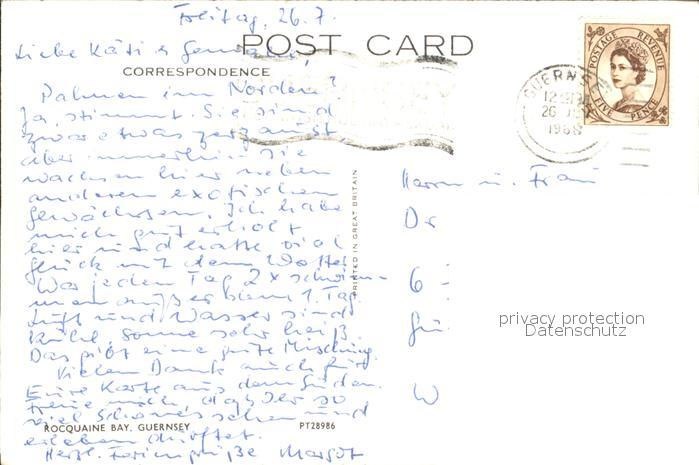 Freitag, 26.7.
Liebe Käti &
POST CARD
CORRESPONDENCE
Palmen im Norden?
Ja, stimmt. Sie sind
zwar etwas zerzaust
aber immerhin sie
wachsen hier neben
anderen exotischen
Gewächsen. Ich habe
mich gut erholt
hier und hatte viel
Glück mit dem Wetter
War jeden Tag 2x schwim-
men außer dem 1. Tag
Luft und Wasser sind
kühl, Sonne sehr heiß.
Das gibt eine gute Mischung.
Vielen Dank auch für
Eure Karte aus dem Süden.
Freue mich, daß Ihr so
viel Schönes sehen und
ROCQUAINE BAY, GUERNSEY
PT28986
erleben dürftet.
Herzl. Feriengrüße Margot
PRINTED IN GREAT BRITAIN
GUERNSEY
26
1968
POSTAGE REVENUE
FIVE PENCE
Herrn u. Frau
Dr
6 -
W
privacy protection
Datenschutz